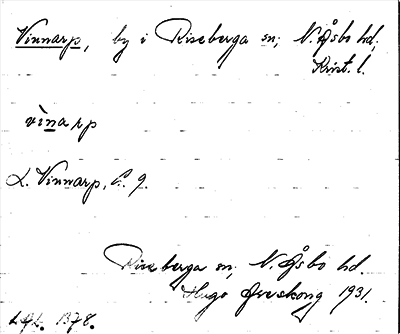 Vinnarp, by i Riseberga sn; N. Åsbo hd;
Krist. l.
vìnarp
L. Vinnarp, C. 9.
Riseberga sn; N. Åsbo hd.
Hugo Areskoug 1931.
LAL. 1378.